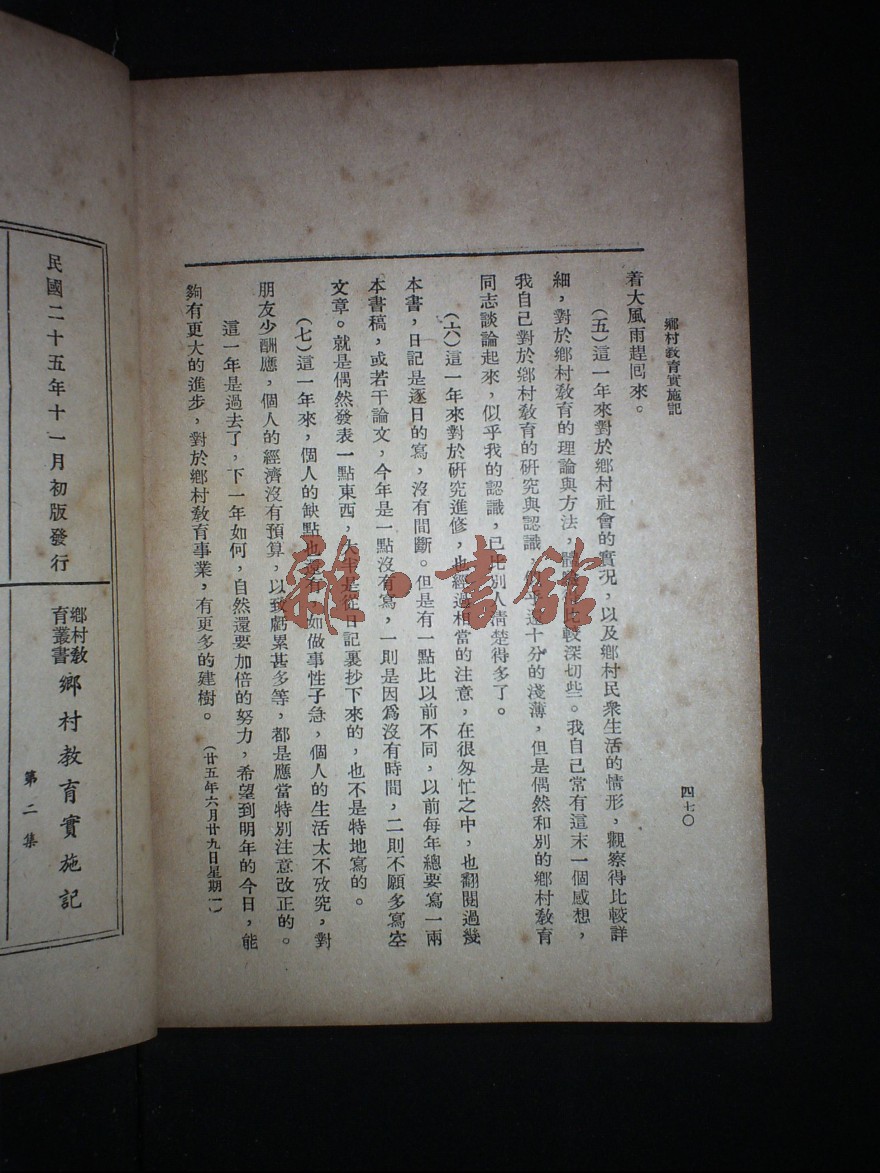 鄉村教育實施記
四七〇
着大風雨趕回來。
(五)這一年來對於鄉村社會的實況，以及鄉村民衆生活的情形，觀察得比較詳
細，對於鄉村教育的理論與方法，體驗比較深切些。我自己常有這末一個感想，
我自己對於鄉村教育的研究與認識，十分的淺薄，但是偶然和別的鄉村教育
同志談論起來，似乎我的認識，已比別人清楚得多了。
(六)這一年來對於研究進修，也經過相當的注意，在很匆忙之中，也翻閱過幾
本書，日記是逐日的寫，沒有間斷。但是有一點比以前不同，以前每年總要寫一兩
本書稿，或若干論文，今年是一點沒有寫，一則是因爲沒有時間，二則不願多寫空
文章。就是偶然發表一點東西，大半是從日記裏抄下來的，也不是特地寫的。
(七)這一年來，個人的缺點也還有，如做事性子急，個人的生活太不攷究，對
朋友少酬應，個人的經濟沒有預算，以致虧累甚多等，都是應當特別注意改正的。
這一年是過去了，下一年如何，自然還要加倍的努力，希望到明年的今日，能
夠有更大的進步，對於鄉村教育事業，有更多的建樹。(廿五年六月廿九日星期一)
雜·書館
民國二十五年十一月初版發行
鄉村教
育叢書
鄉村教育實施記
第二集